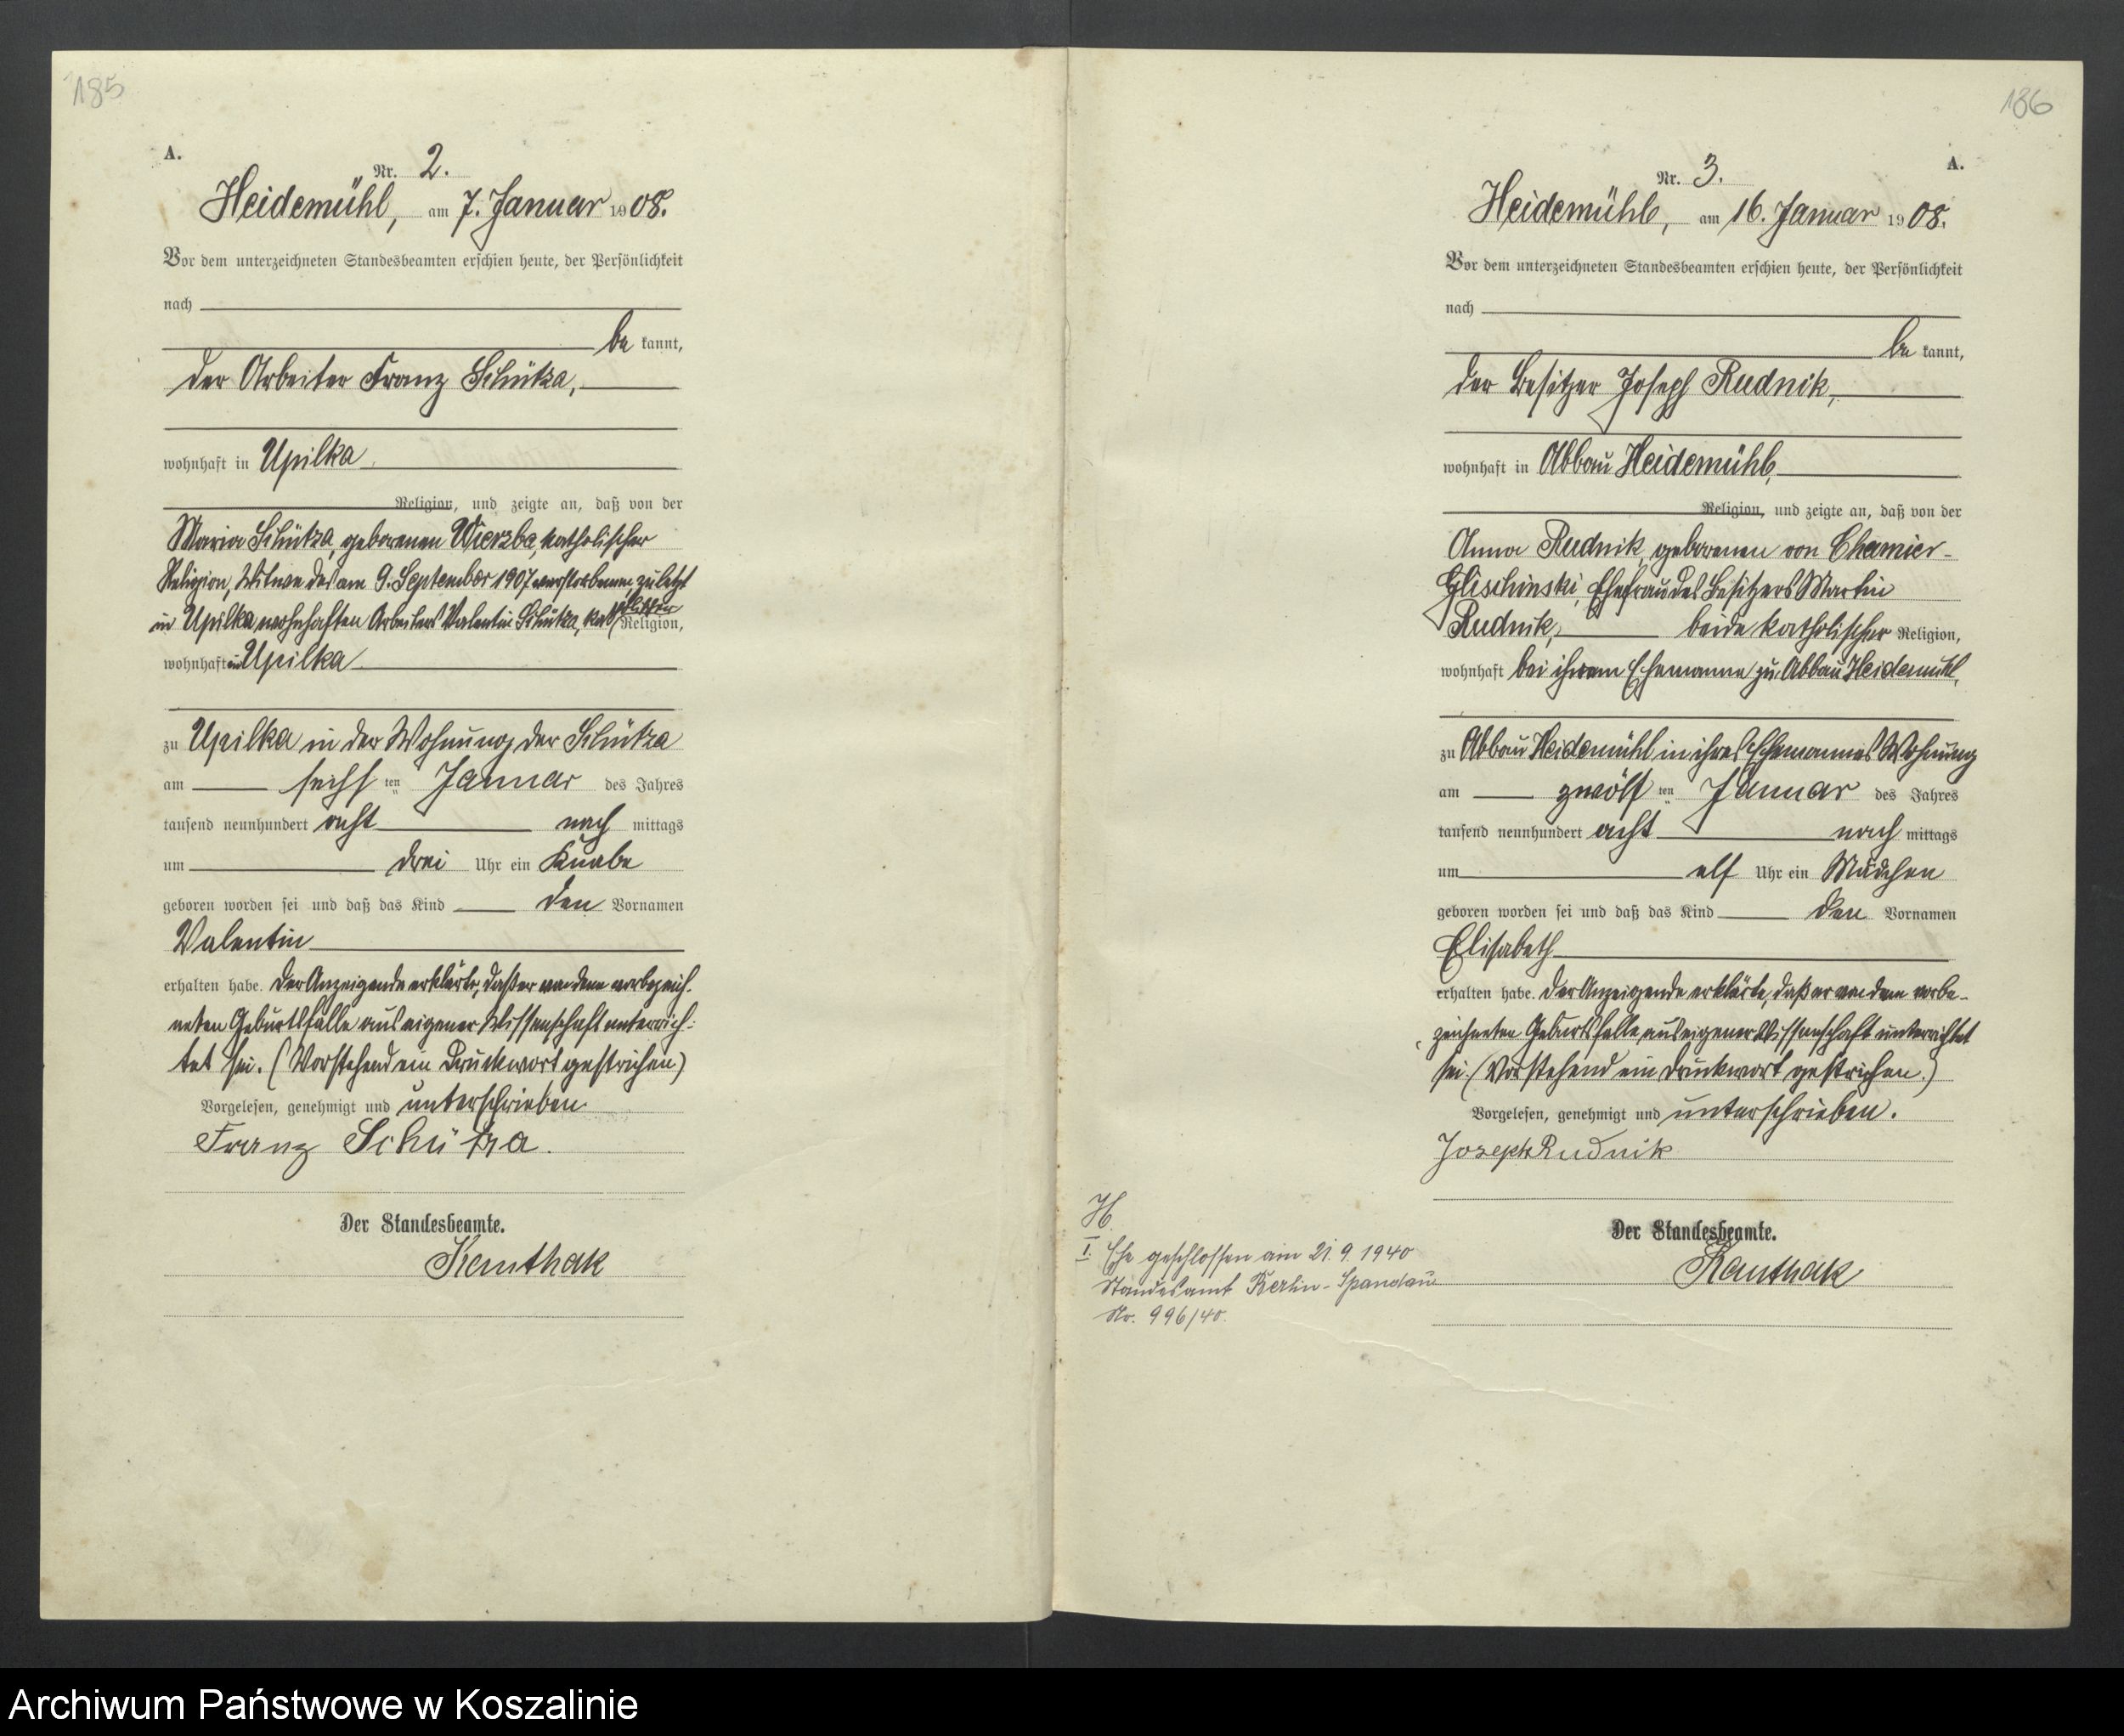 185
A.
Nr. 2.
Heidemühl, am 7. Januar 1908.
Vor dem unterzeichneten Standesbeamten erschien heute, der Persönlichkeit
nach
be kannt,
der Arbeiter Franz Schütza,
wohnhaft in Upilka
Religion, und zeigte an, daß von der
Maria Schütza, geborenen Wierzba, katholischer
Religion, Witwe des am 9. September 1907 verstorbenen, zuletzt
in Upilka wohnhaften Arbeiters Valentin Schütza, katholischer Religion,
wohnhaft in Upilka
zu Upilka in der Wohnung der Schütza
am sechs ten Januar des Jahres
tausend neunhundert acht nach mittags
um drei Uhr ein Knabe
geboren worden sei und daß das Kind den Vornamen
Valentin
erhalten habe. Der Anzeigende erklärte, daß er von dem vorbezeich-
neten Geburtsfalle aus eigener Wissenschaft unterrich-
tet sei. (Vorstehend ein Druckwort gestrichen)
Vorgelesen, genehmigt und unterschrieben.
Franz Schütza.
Der Standesbeamte.
Kanthak
186
A.
Nr. 3.
Heidemühl, am 16. Januar 1908.
Vor dem unterzeichneten Standesbeamten erschien heute, der Persönlichkeit
nach
be kannt,
der Besitzer Joseph Rudnik,
wohnhaft in Abbau Heidemühl,
Religion, und zeigte an, daß von der
Anna Rudnik, geborenen von Chamier-
Glischinski, Ehefrau des Besitzers Martin
Rudnik, beide katholischer Religion,
wohnhaft bei ihrem Ehemanne zu Abbau Heidemühl,
zu Abbau Heidemühl in ihres Ehemannes Wohnung
am zwölf ten Januar des Jahres
tausend neunhundert acht nach mittags
um elf Uhr ein Mädchen
geboren worden sei und daß das Kind den Vornamen
Elisabeth
erhalten habe. Der Anzeigende erklärte, daß er von dem vorbe-
zeichneten Geburtsfalle aus eigener Wissenschaft unterrichtet
sei. (Vorstehend ein Druckwort gestrichen.)
Vorgelesen, genehmigt und unterschrieben.
Joseph Rudnik
Der Standesbeamte.
Kanthak
H
I. Ehe geschlossen am 21. 9. 1940
Standesamt Berlin-Spandau
Nr. 996/40.
Archiwum Państwowe w Koszalinie